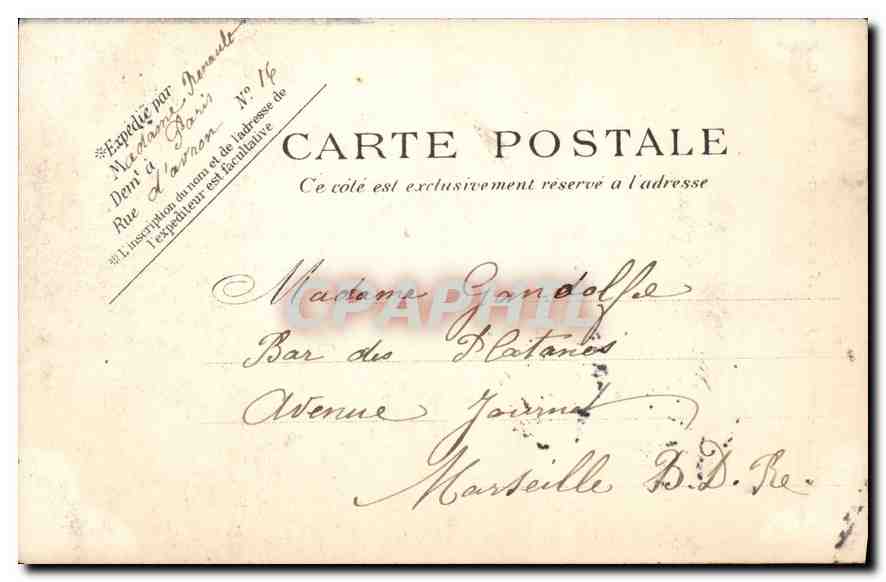 *Expédié par
Madame Renault
Demt à Paris
Rue d'avron No 16
*L'inscription du nom et de l'adresse de
l'expéditeur est facultative
CARTE POSTALE
Ce côté est exclusivement réservé a l'adresse
CPAPHIL
Madame Gandolfe
Bar des Platanes
Avenue Journet
Marseille B.D. Re.